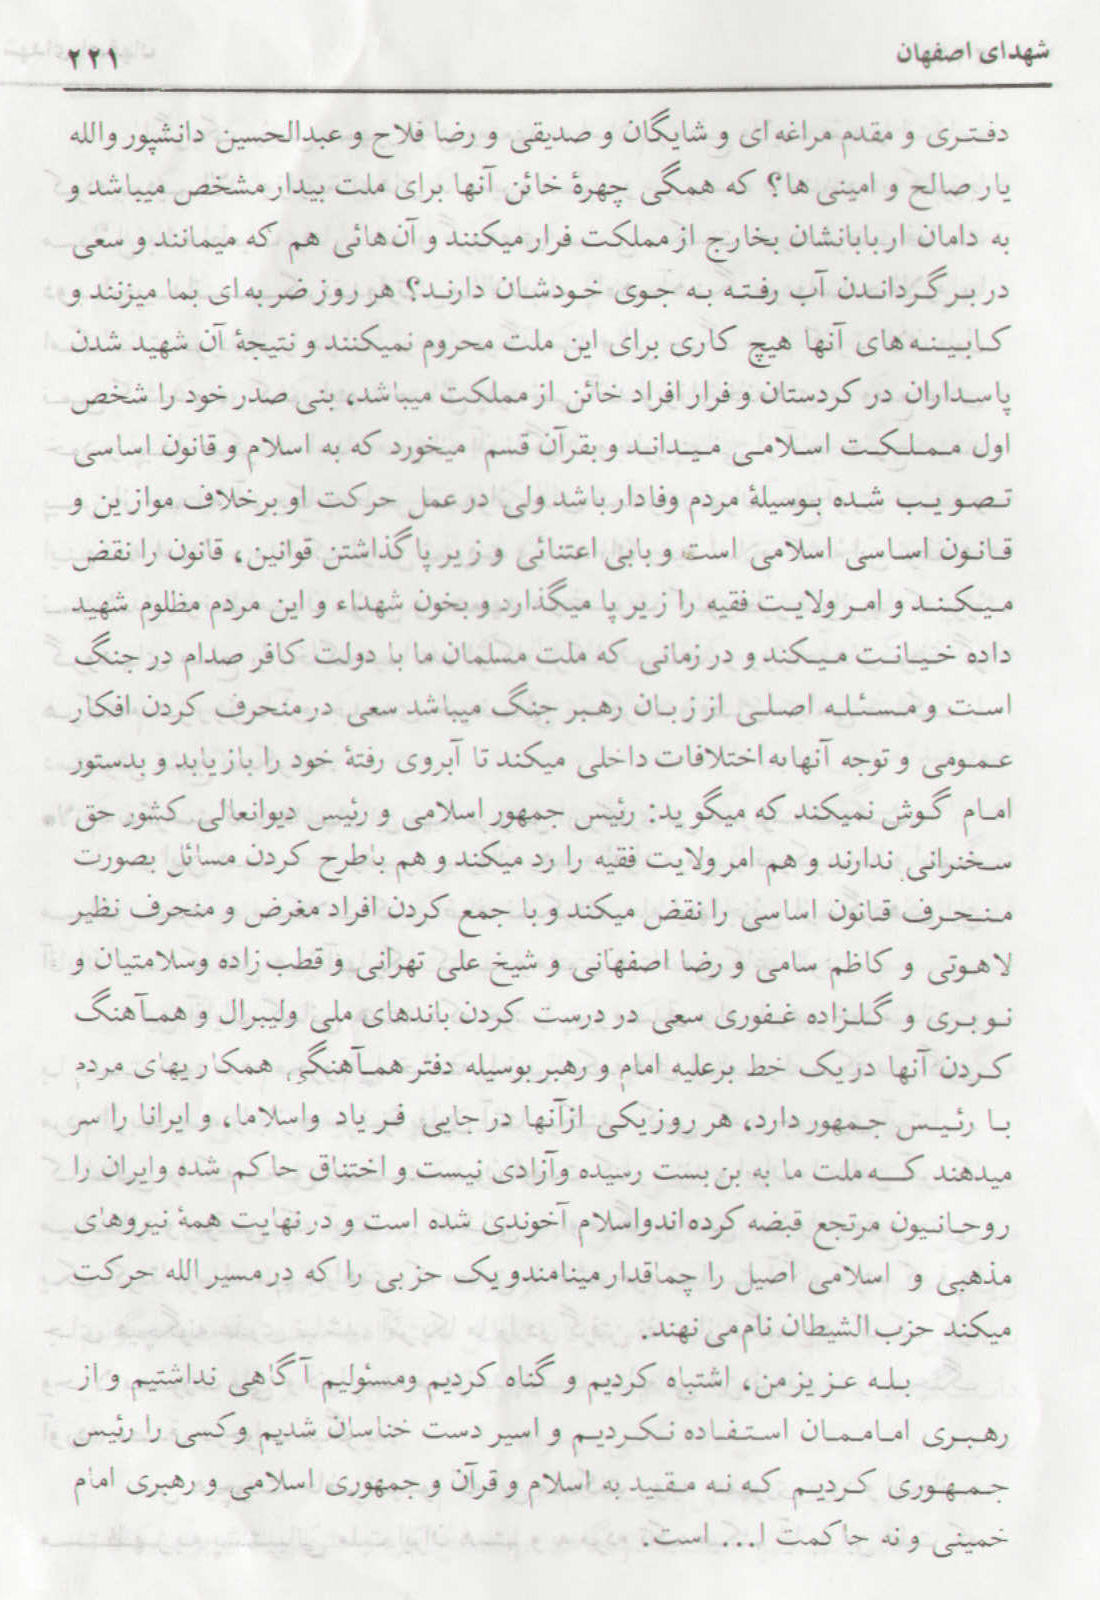 شهدای اصفهان
۲۲۱
دفتری و مقدم مراغه‌ای و شایگان و صدیقی و رضا فلاح و عبدالحسین دانشپور والله
یار صالح و امینی ها؟ که همگی چهرهٔ خائن آنها برای ملت بیدار مشخص میباشد و
به دامان اربابانشان بخارج از مملکت فرار میکنند و آن‌هائی هم که میمانند و سعی
در برگرداندن آب رفته به جوی خودشان دارند؟ هر روز ضربه‌ای بما میزنند و
کابینه‌های آنها هیچ کاری برای این ملت محروم نمیکنند و نتیجهٔ آن شهید شدن
پاسداران در کردستان و فرار افراد خائن از مملکت میباشد، بنی صدر خود را شخص
اول مملکت اسلامی میداند و بقرآن قسم میخورد که به اسلام و قانون اساسی
تصویب شده بوسیلهٔ مردم وفادار باشد ولی در عمل حرکت او برخلاف موازین و
قانون اساسی اسلامی است و بابی اعتنائی و زیر پا گذاشتن قوانین، قانون را نقض
میکند و امر ولایت فقیه را زیر پا میگذارد و بخون شهداء و این مردم مظلوم شهید
داده خیانت میکند و در زمانی که ملت مسلمان ما با دولت کافر صدام در جنگ
است و مسئله اصلی از زبان رهبر جنگ میباشد سعی در منحرف کردن افکار
عمومی و توجه آنها به اختلافات داخلی میکند تا آبروی رفتهٔ خود را بازیابد و بدستور
امام گوش نمیکند که میگوید: رئیس جمهور اسلامی و رئیس دیوانعالی کشور حق
سخنرانی ندارند و هم امر ولایت فقیه را رد میکند و هم باطرح کردن مسائل بصورت
منحرف قانون اساسی را نقض میکند و با جمع کردن افراد مغرض و منحرف نظیر
لاهوتی و کاظم سامی و رضا اصفهانی و شیخ علی تهرانی و قطب زاده وسلامتیان و
نوبری و گلزاده غفوری سعی در درست کردن باندهای ملی ولیبرال و همآهنگ
کردن آنها در یک خط برعلیه امام و رهبر بوسیله دفتر همآهنگی همکاریهای مردم
با رئیس جمهور دارد، هر روز یکی ازآنها در جایی فریاد واسلاما، و ایرانا را سر
میدهند که ملت ما به بن بست رسیده وآزادی نیست و اختناق حاکم شده وایران را
روحانیون مرتجع قبضه کرده‌اندواسلام آخوندی شده است و در نهایت همهٔ نیروهای
مذهبی و اسلامی اصیل را چماقدار مینامندو یک حزبی را که در مسیر الله حرکت
میکند حزب الشیطان نام می نهند.
بله عزیز من، اشتباه کردیم و گناه کردیم ومسئولیم آگاهی نداشتیم و از
رهبری اماممان استفاده نکردیم و اسیر دست خناسان شدیم وکسی را رئیس
جمهوری کردیم که نه مقید به اسلام و قرآن و جمهوری اسلامی و رهبری امام
خمینی و نه حاکمت ا... است.